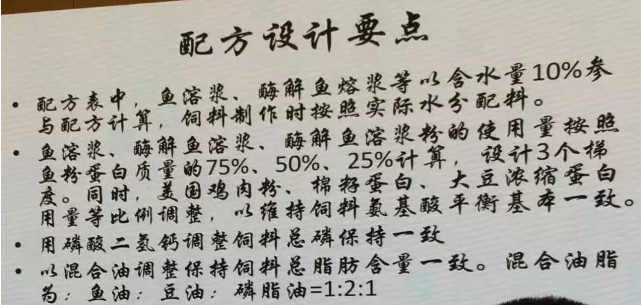 配方设计要点
• 配方表中，鱼溶浆、酶解鱼熔浆等以含水量10%参
与配方计算，饲料制作时按照实际水分配料。
• 鱼溶浆、酶解鱼溶浆、酶解鱼溶浆粉的使用量按照
鱼粉蛋白质量的75%、50%、25%计算，设计3个梯
度。同时，美国鸡肉粉、棉籽蛋白、大豆浓缩蛋白
用量等比例调整，以维持饲料氨基酸平衡基本一致。
• 用磷酸二氢钙调整饲料总磷保持一致
• 以混合油调整保持饲料总脂肪含量一致。混合油脂
为：鱼油：豆油：磷脂油=1:2:1